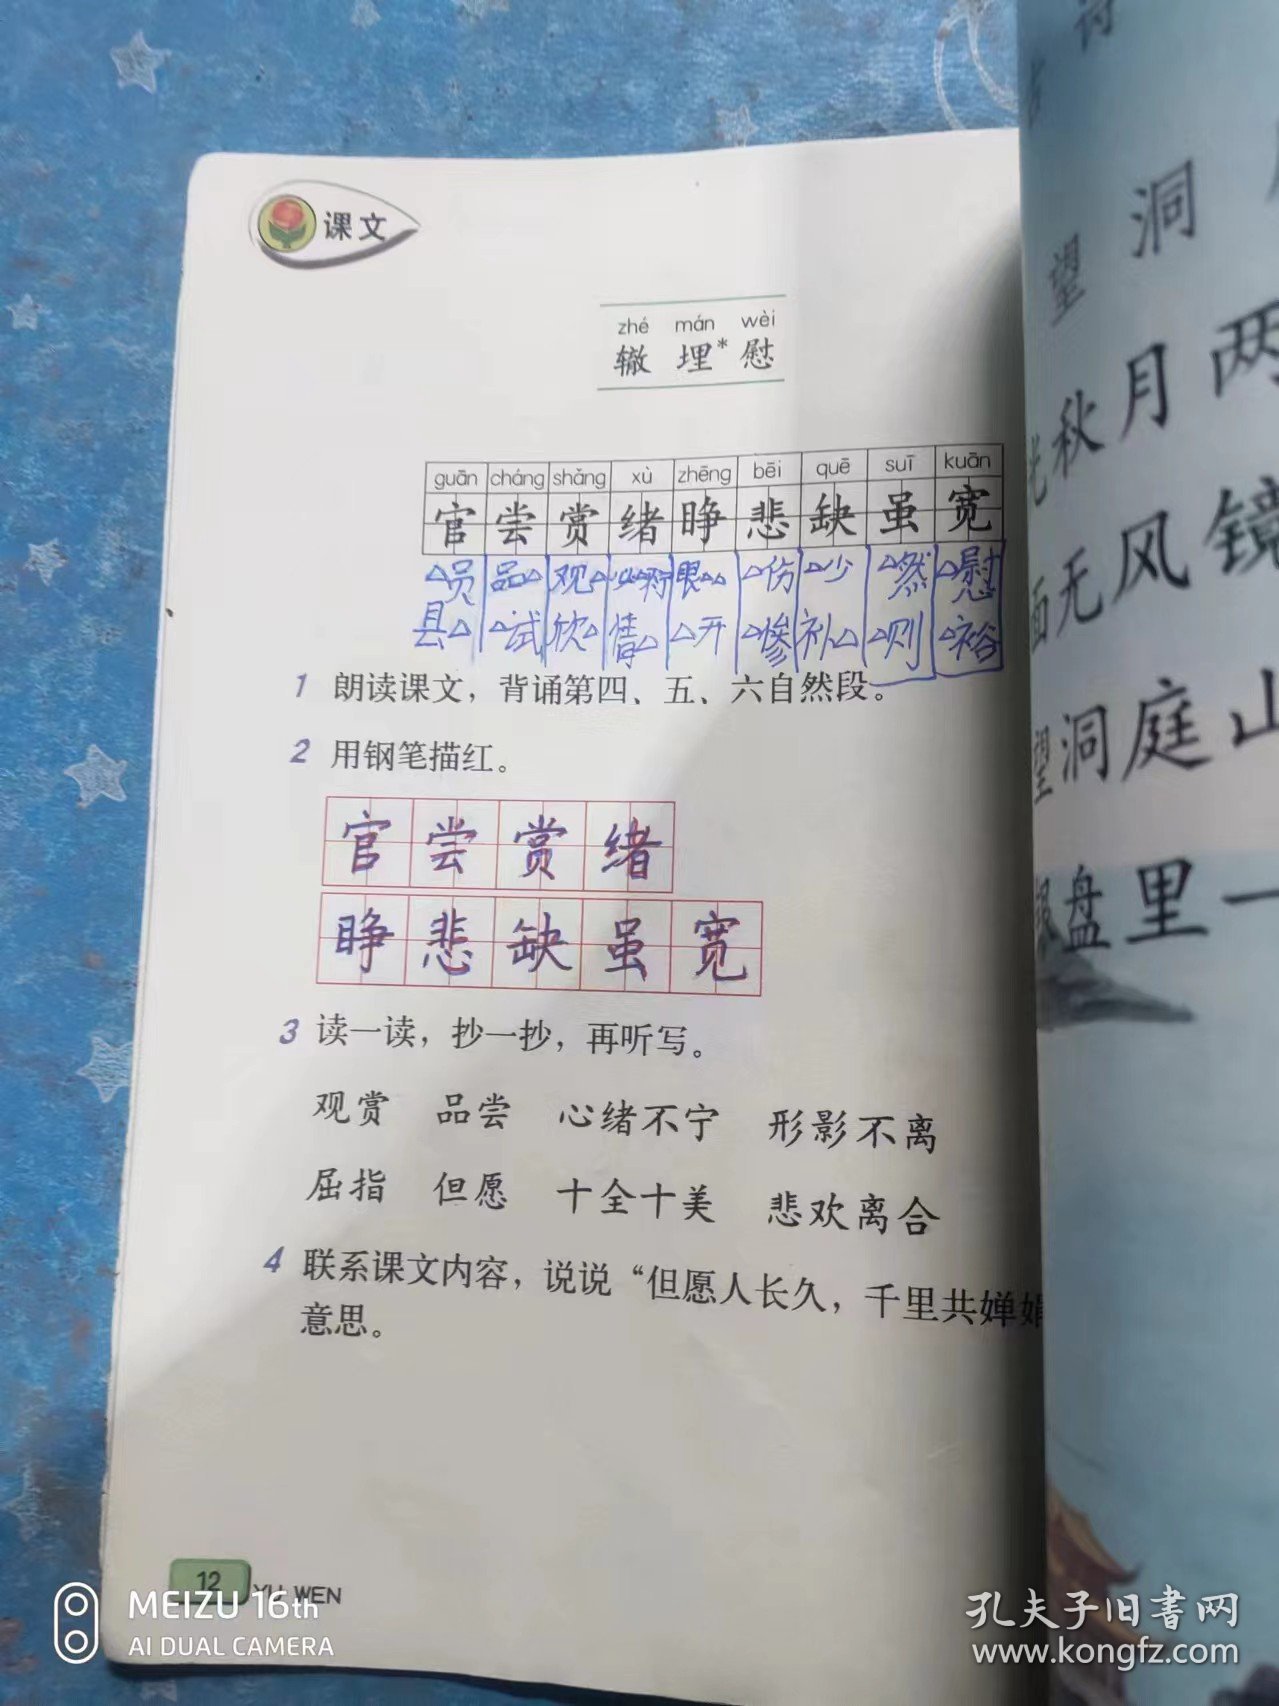 课文
zhé mán wèi
辙 埋* 慰
guān cháng shǎng xù zhēng bēi quē suī kuān
官 尝 赏 绪 睁 悲 缺 虽 宽
△员 品△ 观△ 眼△ △伤 △少 △然 △慰
县△ △试 欣△ 情△ △开 △惨 补△ △则 △裕
1 朗读课文，背诵第四、五、六自然段。
2 用钢笔描红。
官 尝 赏 绪
睁 悲 缺 虽 宽
3 读一读，抄一抄，再听写。
观赏 品尝 心绪不宁 形影不离
屈指 但愿 十全十美 悲欢离合
4 联系课文内容，说说“但愿人长久，千里共婵娟
意思。
12 YU WEN
诗
望 洞
秋月两
面无风镜
望洞庭山
盘里一
MEIZU 16th
AI DUAL CAMERA
孔夫子旧书网
www.kongfz.com